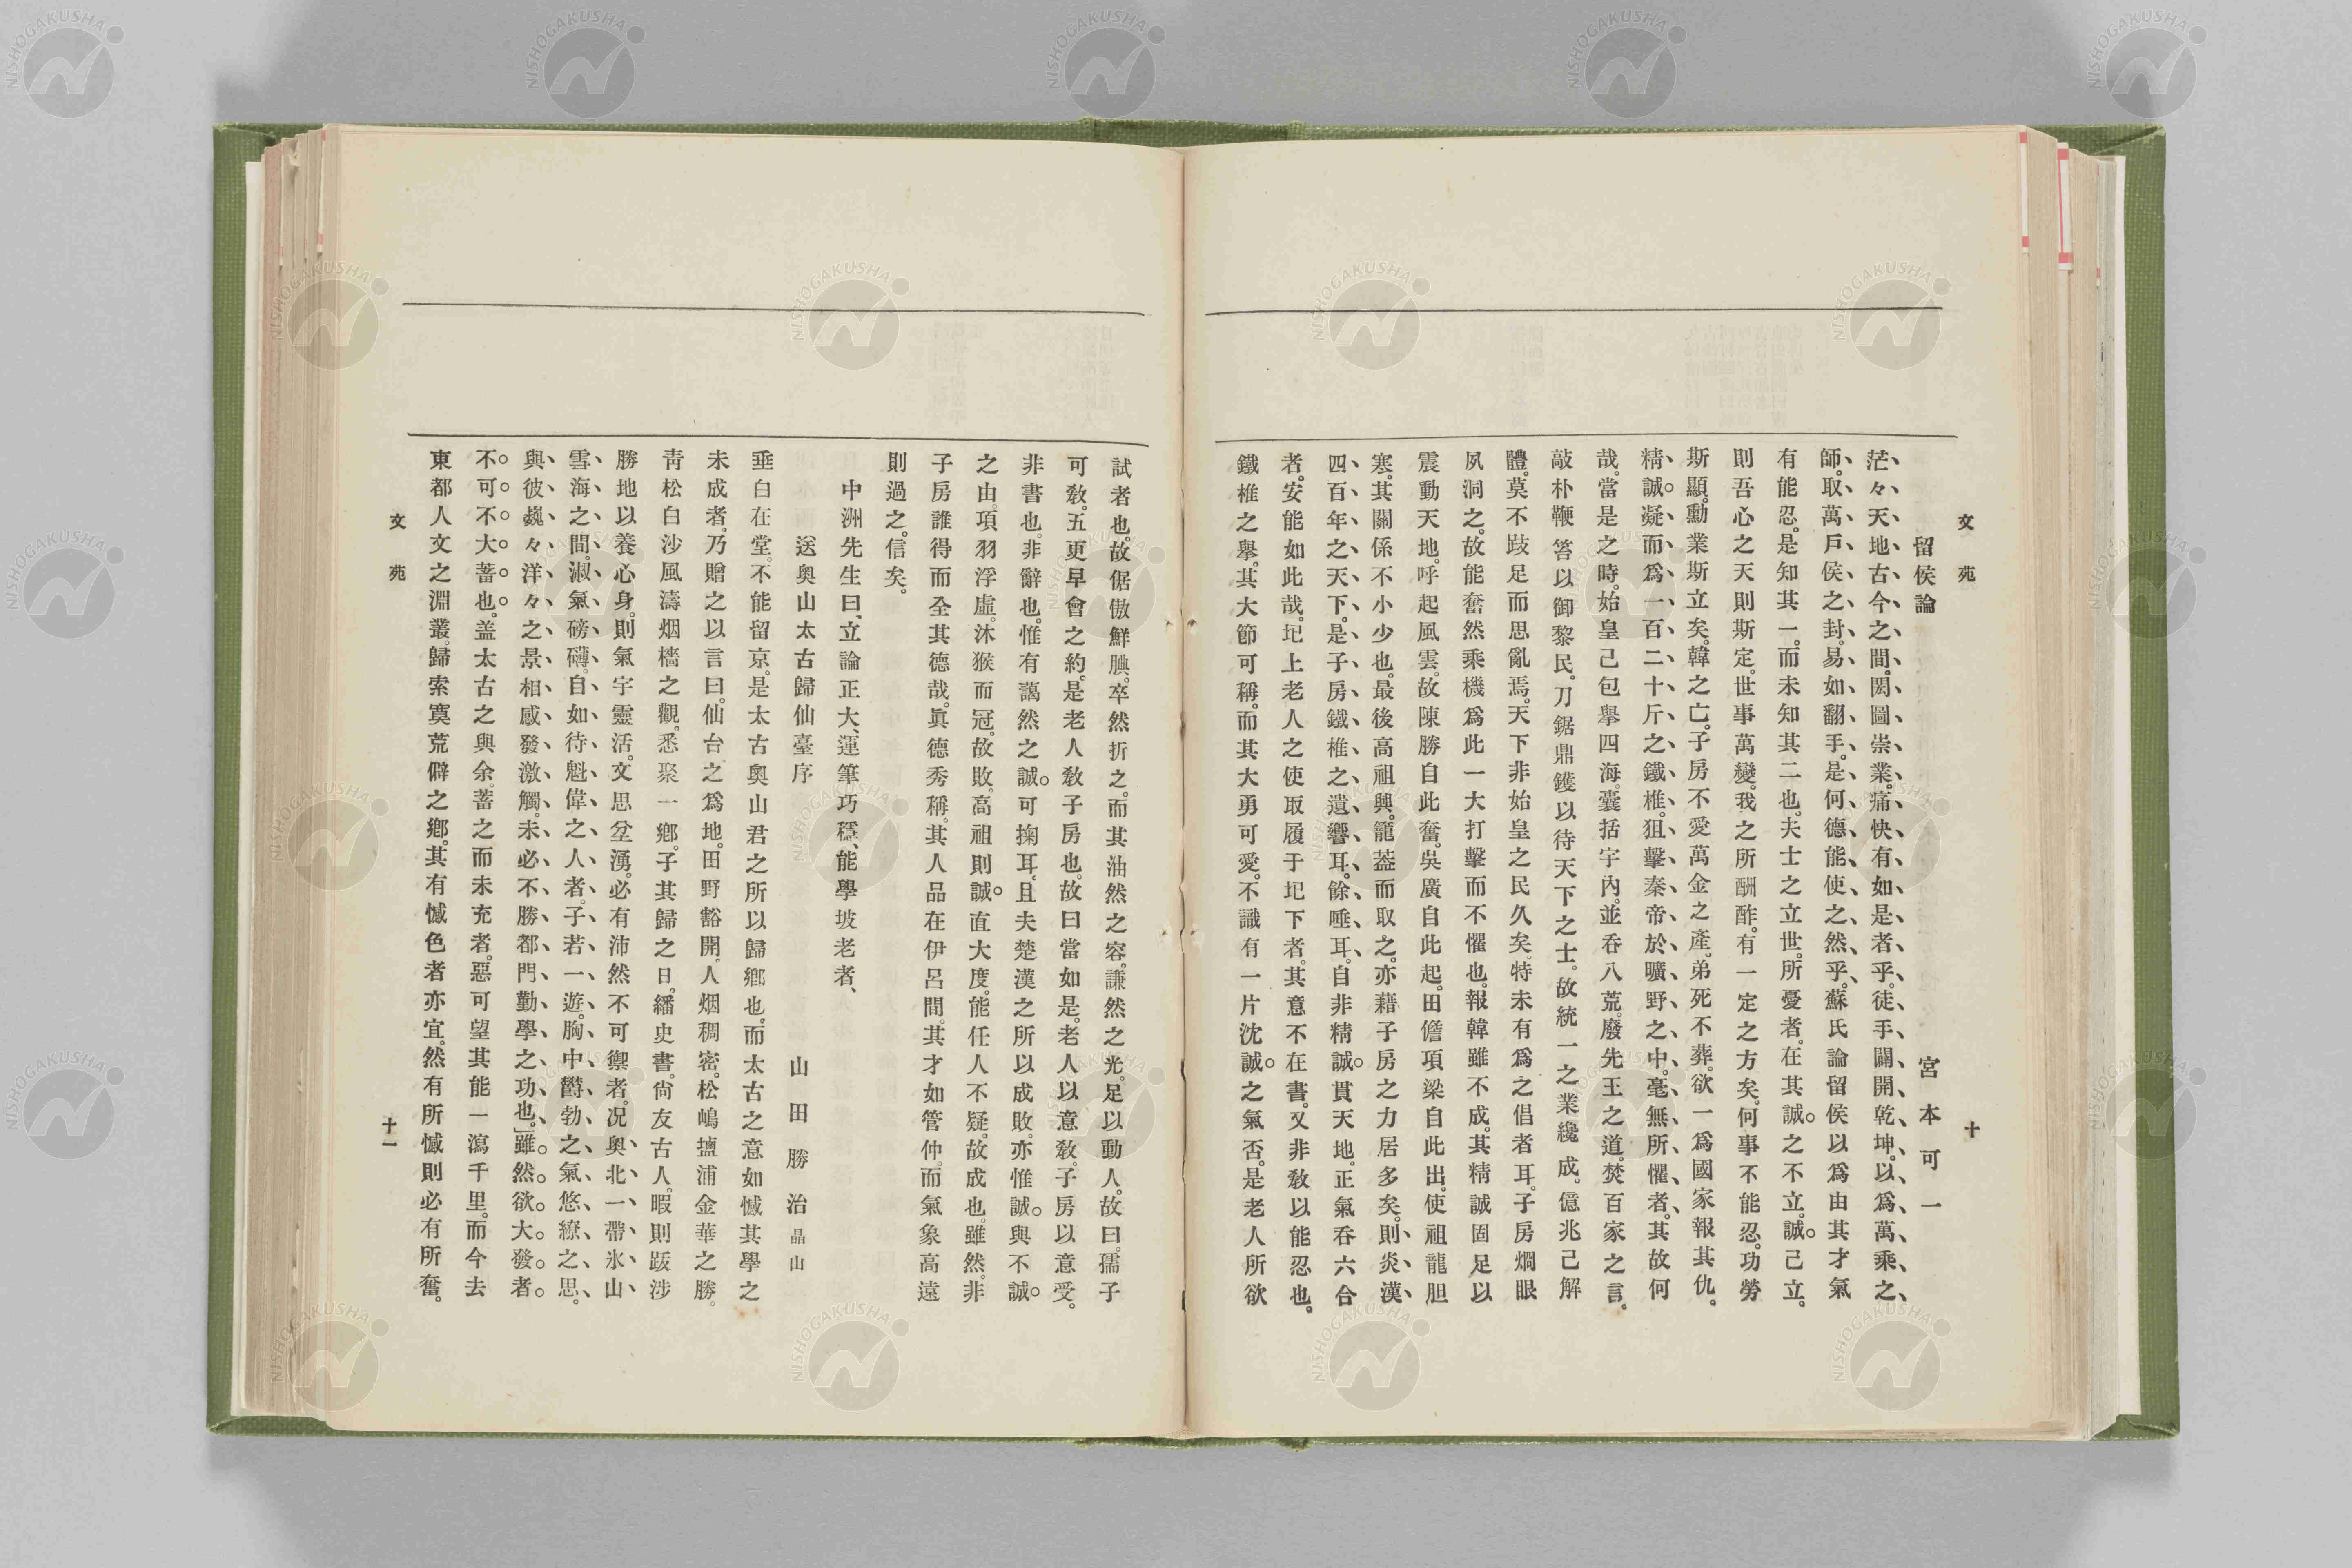 文苑
十
留侯論
宮本可一
茫々天地古今之間。閎圖崇業。痛快有如是者乎。徒手闢開乾坤。以爲萬乘之
師。取萬戶侯之封。易如翻手。是何德能使之然乎。蘇氏論留侯以爲由其才氣
有能忍。是知其一。而未知其二也。夫士之立世。所憂者。在其誠之不立。誠己立。
則吾心之天則斯定。世事萬變。我之所酬酢。有一定之方矣。何事不能忍。功勞
斯顯。勳業斯立矣。韓之亡。子房不愛萬金之產。弟死不葬。欲一爲國家報其仇。
精誠凝而爲一百二十斤之鐵椎。狙擊秦帝於曠野之中。毫無所懼者。其故何
哉。當是之時。始皇己包擧四海。囊括宇內。並呑八荒。廢先王之道。焚百家之言。
敲朴鞭笞以御黎民。刀鋸鼎鑊以待天下之士。故統一之業纔成。億兆己解
體。莫不跂足而思亂焉。天下非始皇之民久矣。特未有爲之倡者耳。子房烱眼
夙洞之。故能奮然乘機爲此一大打擊而不懼也。報韓雖不成。其精誠固足以
震動天地。呼起風雲。故陳勝自此奮。吳廣自此起。田儋項梁自此出。使祖龍胆
寒。其關係不小少也。最後高祖興。籠蓋而取之。亦藉子房之力居多矣。則炎漢
四百年之天下。是子房鐵椎之遺響耳。餘唾耳。自非精誠貫天地。正氣呑六合
者。安能如此哉。圯上老人之使取履于圯下者。其意不在書。又非敎以能忍也。
鐵椎之擧。其大節可稱。而其大勇可愛。不識有一片沈誠之氣否。是老人所欲
試者也。故倨傲鮮腆。卒然折之。而其油然之容。謙然之光。足以動人。故曰。孺子
可敎。五更早會之約。是老人敎子房也。故曰當如是。老人以意敎。子房以意受。
非書也。非辭也。惟有藹然之誠可掬耳。且夫楚漢之所以成敗。亦惟誠與不誠
之由。項羽浮虛。沐猴而冠。故敗。高祖則誠直大度。能任人不疑。故成也。雖然。非
子房誰得而全其德哉。眞德秀稱。其人品在伊呂間。其才如管仲。而氣象高遠
則過之。信矣。
中洲先生曰、立論正大、運筆巧穩、能學坡老者、
送奧山太古歸仙臺序
山田勝治 晶山
垂白在堂。不能留京。是太古奧山君之所以歸鄕也。而太古之意如憾其學之
未成者。乃贈之以言曰。仙台之爲地。田野豁開、人烟稠密。松嶋鹽浦金華之勝。
靑松白沙風濤烟檣之觀。悉聚一鄕。子其歸之日。繙史書。尙友古人。暇則跋涉
勝地以養心身。則氣宇靈活。文思坌湧。必有沛然不可禦者。况奧北一帶氷山
雪海之間。淑氣磅礴。自如待魁偉之人者。子若一遊。胸中欝勃之氣悠繚之思。
與彼巍々洋々之景。相感發激觸。未必不勝都門勤學之功也。」雖然。欲大發者。
不可不大蓄也。盖太古之與余。蓄之而未充者。惡可望其能一瀉千里。而今去
東都人文之淵叢。歸索寞荒僻之鄕。其有憾色者亦宜。然有所憾則必有所奮。
文苑
十一